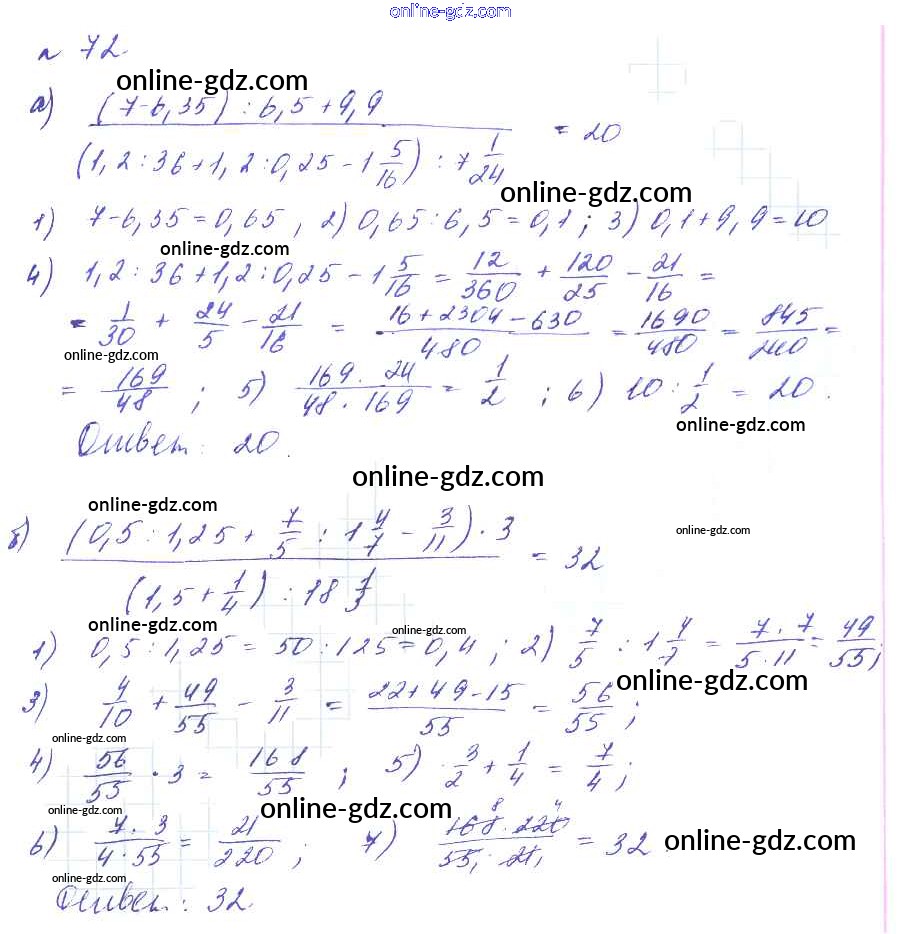 online-gdz.com
№ 72.
online-gdz.com
а) ((7-6,35) : 6,5 + 9,9) / ((1,2 : 36 + 1,2 : 0,25 - 1 5/16) : 7 1/24) = 20
online-gdz.com
1) 7-6,35 = 0,65, 2) 0,65 : 6,5 = 0,1 ; 3) 0,1 + 9,9 = 10
online-gdz.com
4) 1,2 : 36 + 1,2 : 0,25 - 1 5/16 = 12/360 + 120/25 - 21/16 =
= 1/30 + 24/5 - 21/16 = (16 + 2304 - 630)/480 = 1690/480 = 845/240 =
online-gdz.com
= 169/48 ; 5) (169 · 24)/(48 · 169) = 1/2 ; 6) 10 : 1/2 = 20.
online-gdz.com
Ответ: 20.
online-gdz.com
online-gdz.com
online-gdz.com
б) ((0,5 : 1,25 + 7/5 : 1 4/7 - 3/11) · 3) / ((1,5 + 1/4) : 18 1/3) = 32
online-gdz.com
online-gdz.com
1) 0,5 : 1,25 = 50 : 125 = 0,4 ; 2) 7/5 : 1 4/7 = (7 · 7)/(5 · 11) = 49/55 ;
online-gdz.com
3) 4/10 + 49/55 - 3/11 = (22 + 49 - 15)/55 = 56/55 ;
online-gdz.com
4) 56/55 · 3 = 168/55 ; 5) 3/2 + 1/4 = 7/4 ;
online-gdz.com
online-gdz.com
6) (7 · 3)/(4 · 55) = 21/220 ; 7) (168 · 220)/(55 · 21) = 32
online-gdz.com
online-gdz.com
Ответ: 32.